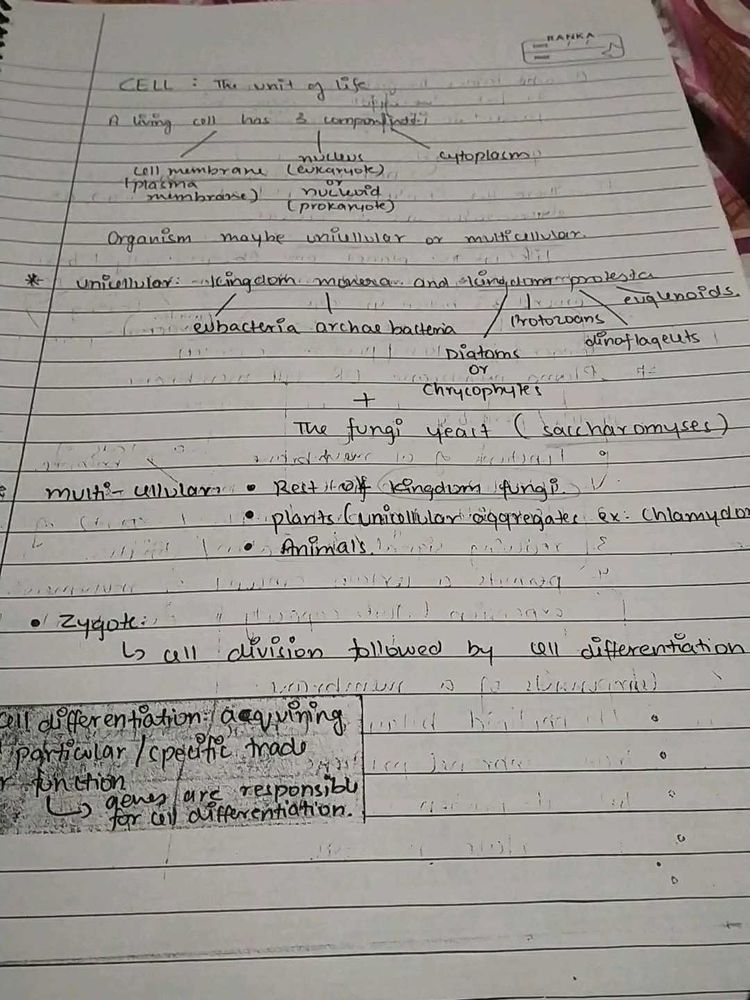 RANKA
CELL : The unit of life
A living cell has 3 components
cell membrane
(plasma
membrane)
nucleus
(eukaryote)
or
nucleoid
(prokaryote)
cytoplasm
Organism maybe unicellular or multicellular.
* unicellular: kingdom monera and kingdom protesta
eubacteria archae bacteria
Diatoms
or
Chrycophytes
Protozoans
dinoflagelets
euglenoids.
+
The fungi yeast ( saccharomyses)
multi-cellular: • Rest of kingdom fungi.
• plants (unicellular aggregates ex: chlamydo
• Animals.
• Zygote:
↳ cell division followed by cell differentiation
cell differentiation: acquining
particular/specific trade
function
↳ genes are responsible
for cell differentiation.